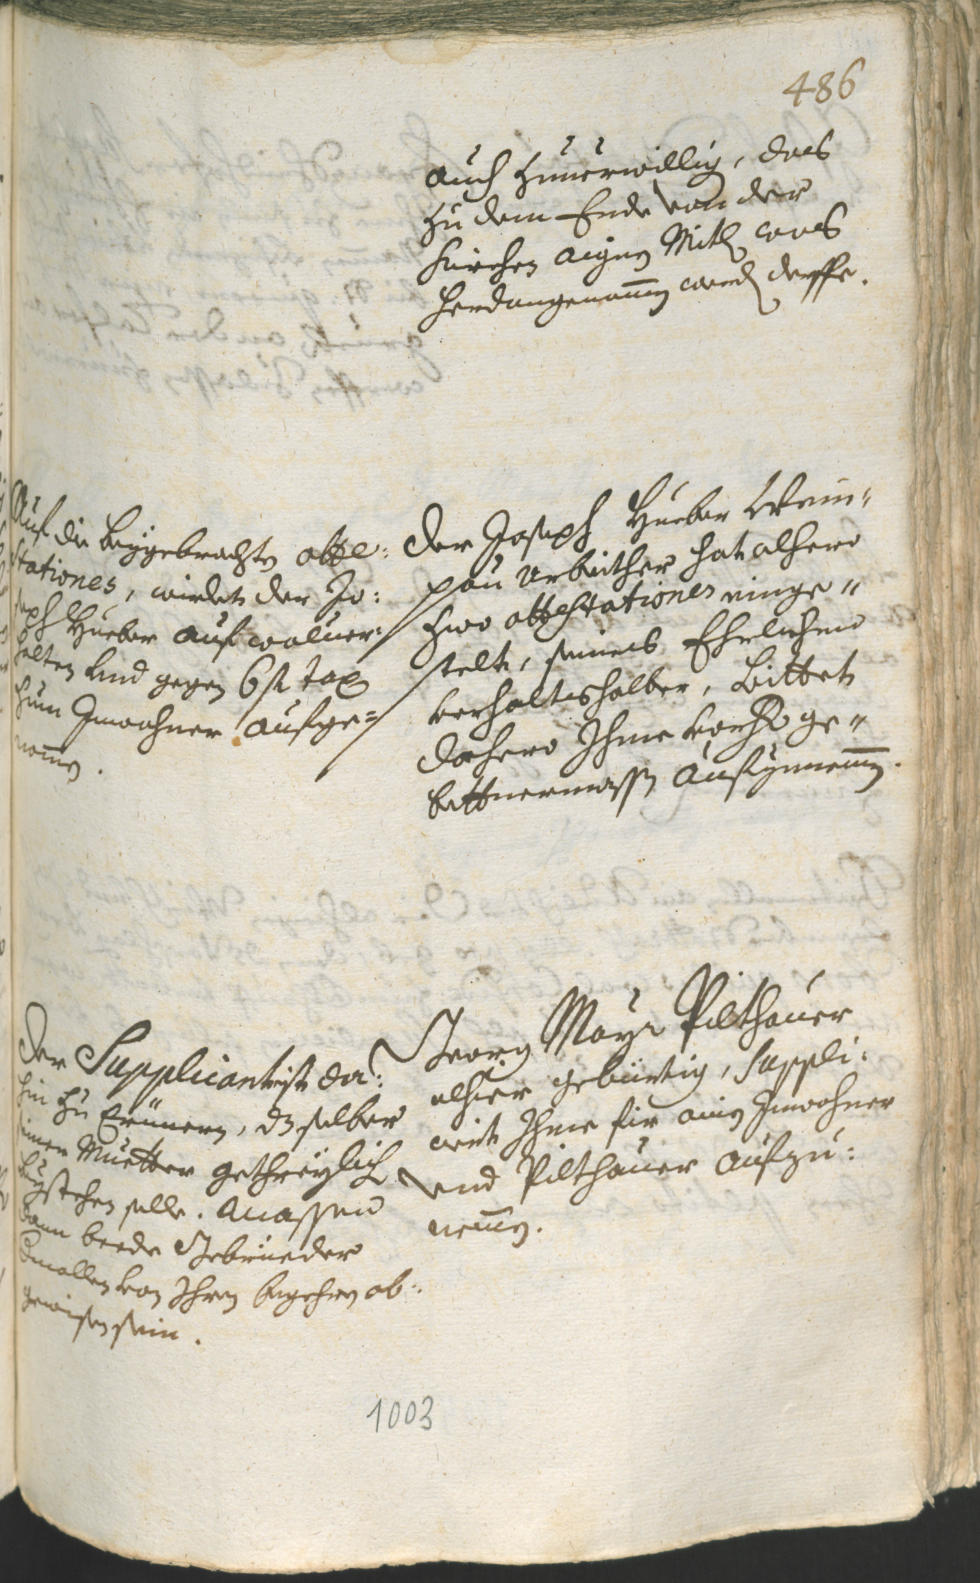 486
auch zuuerwillig, das
zu dem Ende von der
Kirchen aignen Mitl was
herdangenommen werden derffe.
Auf die beygebrachte atte:
stationes, wirdet der Jo:
seph Hueber auf woluer:
halten und gegen 6 fl tax
zum Inwohner aufge=
nommen.
Der Joseph Hueber Wein=
pau Arbeither hat alhero
zwo attestationes einge=
stelt, seines Ehrlichen
verhaltshalber, Bittet
dahero Ihme ge=
bettnermassen aufzunemmen.
Der Supplicant ist da:
hin zu Erinnern, dz selber
seiner Muetter gethreylich
beystehen solle. Massen
dann beede Gebrüeder
von Ihren begehren ab:
gewisen sein.
Georg Mayr Pilthauer
alhier gebürtig, Suppli:
ciert Ihme für ainen Inwohner
und Pilthauer aufzu:
nemmen.
1003